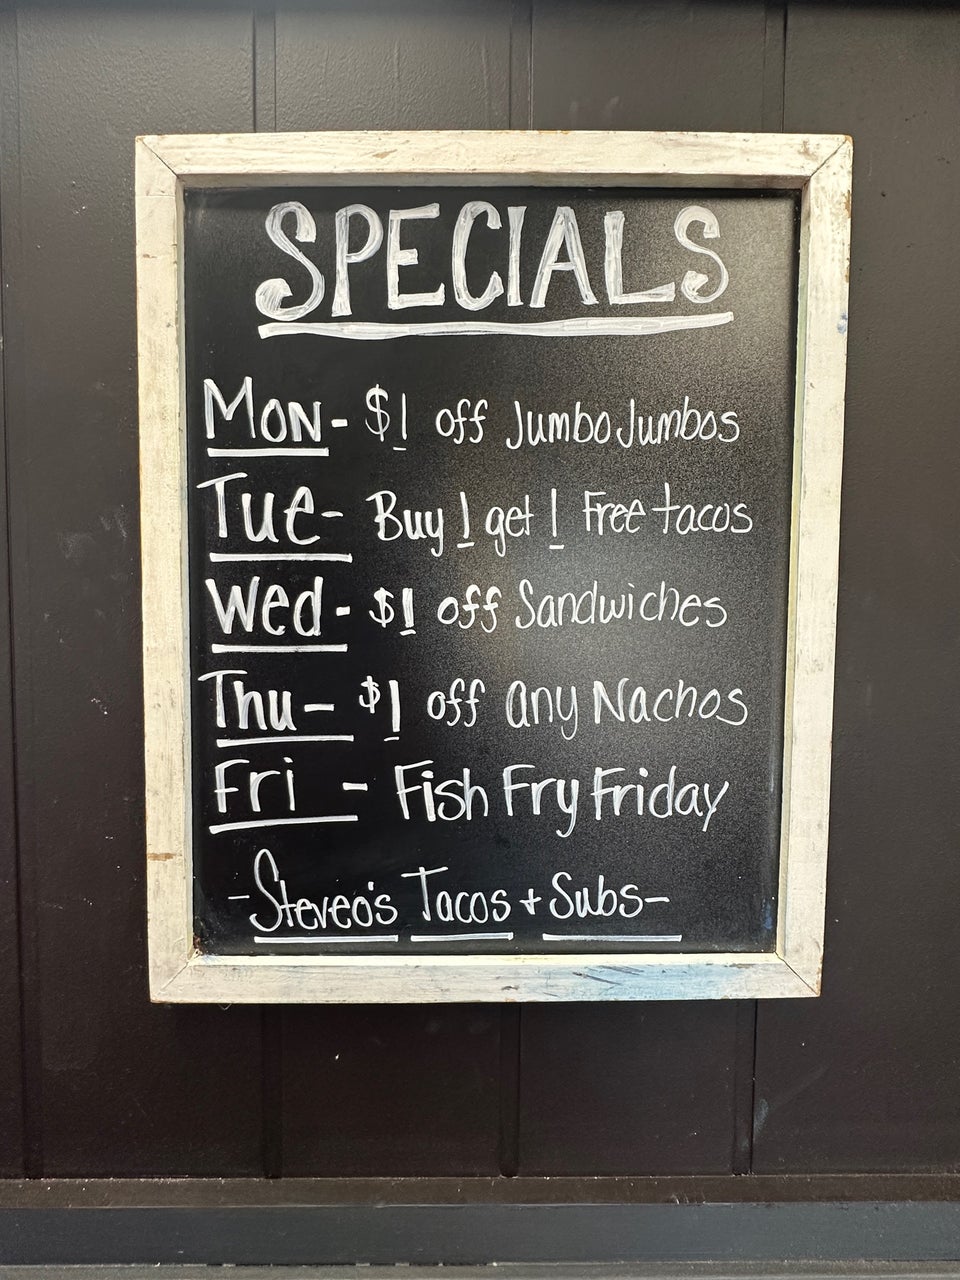 SPECIALS
Mon- $1 off Jumbo Jumbos
Tue- Buy 1 get 1 Free tacos
Wed- $1 off Sandwiches
Thu- $1 off any Nachos
Fri - Fish Fry Friday
-Steveo's Tacos + Subs-